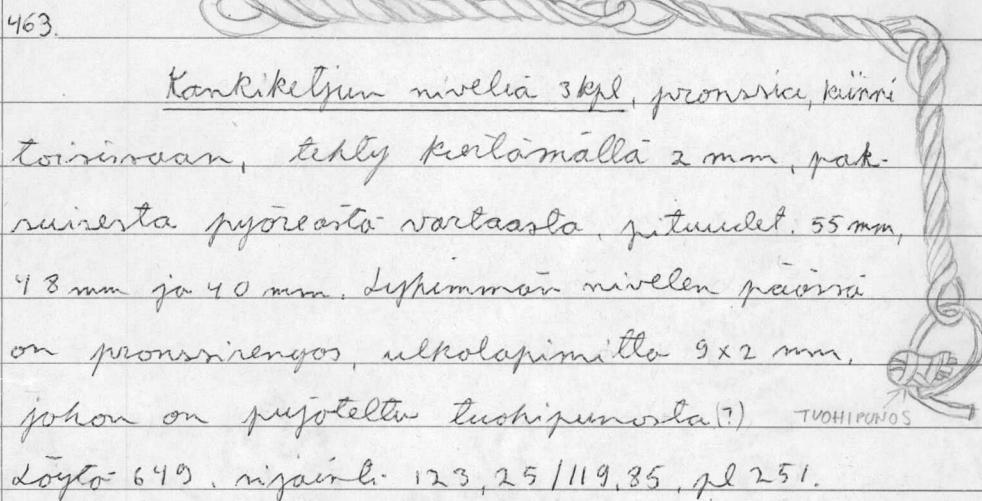 463.
Kankiketjun niveliä 3 kpl, pronssia, kiinni
toisissaan, tehty kiertämällä 2 mm, pak-
suisesta pyöreästä vartaasta, pituudet. 55 mm,
48 mm ja 40 mm. Lyhimmän nivelen päässä
on pronssirengas, ulkoläpimitta 9x2 mm,
johon on pujoteltu tuohipunosta (?)
TUOHIPUNOS
Löytö 649. sijainti 123,25/119,85, pl 251.